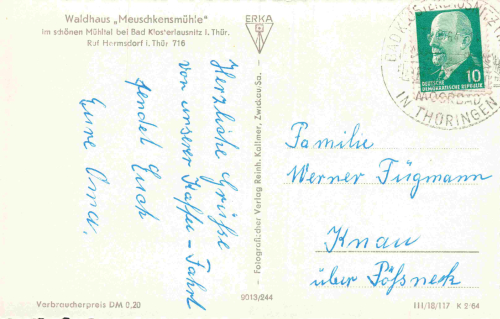 Waldhaus „Meuschkensmühle"
im schönen Mühltal bei Bad Klosterlausnitz i. Thür.
Ruf Hermsdorf i. Thür 716
ERKA
Herzliche Grüße
von unserer Kaffee-Fahrt
sendet Euch
Eure Oma.
Fotografischer Verlag Reinh. Kallmer, Zwickau.Sa.
DEUTSCHE
DEMOKRATISCHE REPUBLIK
10
MOORBAD
IN THÜRINGEN
Familie
Werner Fügmann
Knau
über Pößneck
Verbraucherpreis DM 0,20
9013/244
III/18/117 K 2/64